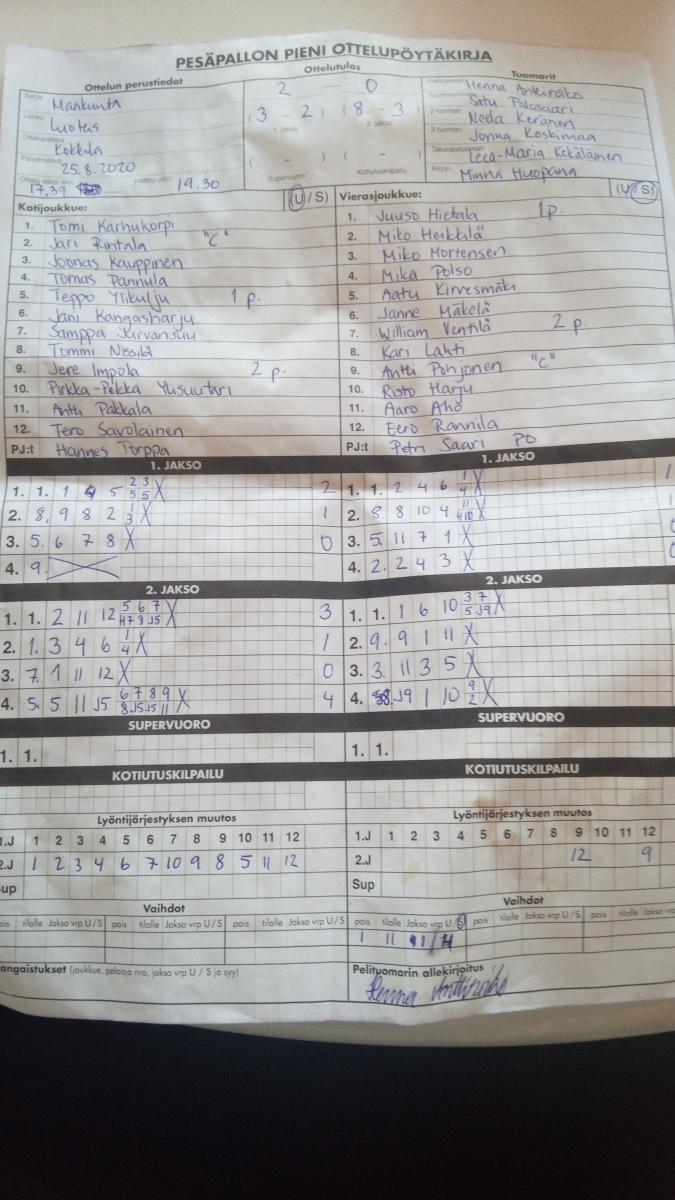 PESÄPALLON PIENI OTTELUPÖYTÄKIRJA
Ottelun perustiedot
Ottelutulos
Tuomarit
Maakunta
Luoteis
Kokkola
25.8.2020
17.39
19.30
2 - 0
(3 - 2) (8 - 3)
1. jakso 2. jakso
( - ) ( - )
Supervuoro Kotiutuskilpailu
Henna Anttiroiko
Satu Palosaari
Neea Keränen
Jonna Koskimaa
Leea-Maria Kekäläinen
Minna Huopana
Kotijoukkue: (U/S)
1. Tomi Karhukorpi
2. Jari Rintala "C"
3. Joonas Kauppinen
4. Tomas Pannula
5. Teppo Ylikulju 1 p.
6. Jani Kangasharju
7. Samppa Jurvansuu
8. Tommi Nissilä
9. Jere Impola 2 p.
10. Pirkka-Pekka Yusuutari
11. Antti Pakkala
12. Tero Savolainen
PJ:t Hannes Torppa
Vierasjoukkue: (U/S)
1. Juuso Hietala 1p.
2. Miko Heikkilä
3. Miko Mortensen
4. Mika Polso
5. Aatu Kirvesmäki
6. Janne Mäkelä
7. William Ventilä 2 p.
8. Kari Lahti
9. Antti Pohjonen "C"
10. Risto Harju
11. Aaro Aho
12. Eero Rannila
PJ:t Petri Saari PO
1. JAKSO
1. 1. 1 4 5 2/5 3/5 X 2
2. 8. 9 8 2 1/3 X 1
3. 5. 6 7 8 X 0
4. 9.
1. JAKSO
1. 1. 2 4 6 1/4 X 1
2. 8. 8 10 4 11/410 X 1
3. 5. 11 7 1 X 0
4. 2. 2 4 3 X 0
2. JAKSO
1. 1. 2 11 12 5/4 6/7 7/8 J5 X 3
2. 1. 3 4 6 1/4 X 1
3. 7. 1 11 12 X 0
4. 5. 5 11 J5 6/8 7/J5 8/J5 9/11 X 4
2. JAKSO
1. 1. 1 6 10 3/5 7/J9 X
2. 9. 9 1 11 X
3. 3. 11 3 5 X
4. 8. J9 1 10 9/2 X
SUPERVUORO
1. 1.
SUPERVUORO
1. 1.
KOTIUTUSKILPAILU
KOTIUTUSKILPAILU
Lyöntijärjestyksen muutos
1.J 1 2 3 4 5 6 7 8 9 10 11 12
2.J 1 2 3 4 6 7 10 9 8 5 11 12
Sup
Lyöntijärjestyksen muutos
1.J 1 2 3 4 5 6 7 8 9 10 11 12
2.J 12 9
Sup
Vaihdot
pois tilalle Jakso vrp U/S pois tilalle Jakso vrp U/S pois tilalle Jakso vrp U/S
Vaihdot
pois tilalle Jakso vrp U/S pois tilalle Jakso vrp U/S pois tilalle Jakso vrp
1 11
angaistukset (joukkue, pelaaja nro, jakso vrp U / S ja syy)
Pelituomarin allekirjoitus
Henna Anttiroiko